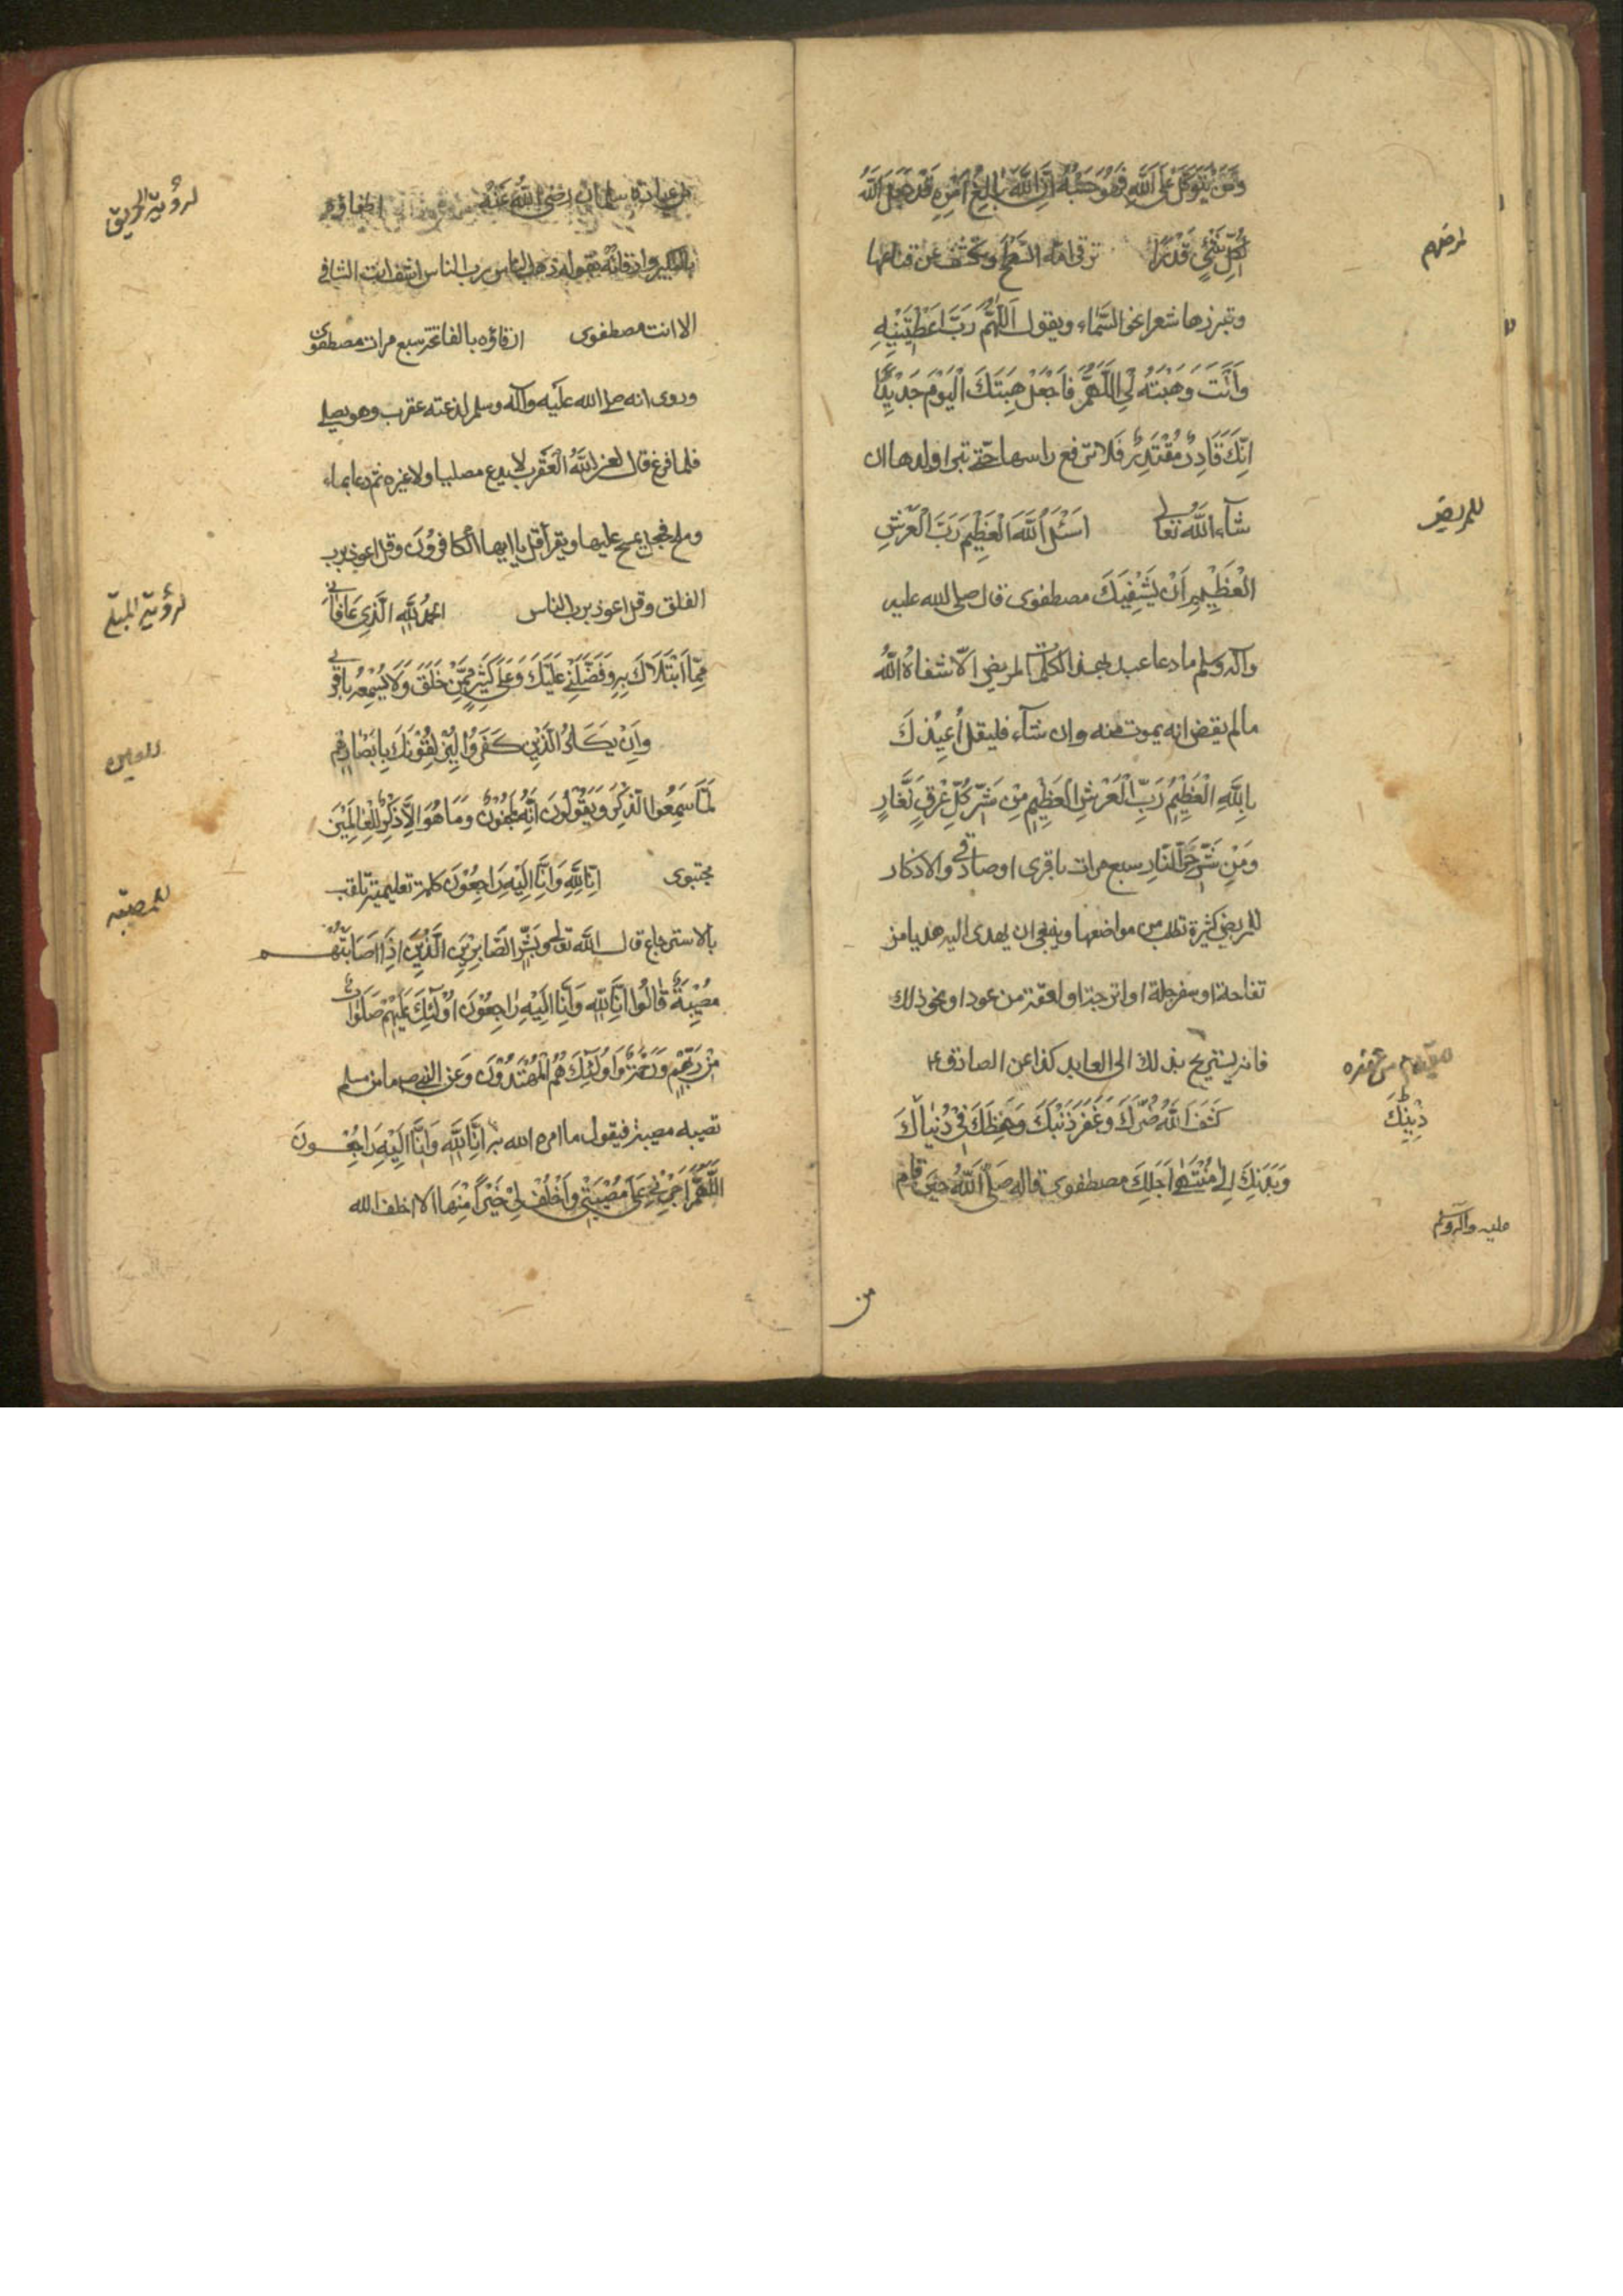 وَمَنْ يَتَوَكَّلْ عَلَى اللَّهِ فَهُوَ حَسْبُهُ اِنَّ اللَّهَ بَالِغُ اَمْرِهِ قَدْ جَعَلَ اللَّهُ
لِكُلِّ شَيْءٍ قَدْرًا ترقى امه السطح وتكشف عن قناعها
لمرضهم
وتبرز شعرها نحو السَّماء ويقول اَللّهُمَّ رَبِّ اَعْطَيْتَنِيهِ
وَاَنْتَ وَهَبْتَهُ لِي اَللّهُمَّ فَاجْعَلْ هِبَتَكَ الْيَوْمَ جَدِيْدًا
اِنَّكَ قَادِرٌ مُقْتَدِرٌ فلا ترفع راسها حتى تبرا ولدها ان
شآء اللَّهُ تعالى اَسْئَلُ اللَّهَ الْعَظِيْمَ رَبَّ الْعَرْشِ
للمريض
الْعَظِيْمِ اَنْ يَشْفِيَكَ مصطفوى قال صلى الله عليه
وآله وسلم ما دعا عبد بهذه الكلمات لمريض الّا شفاهُ اللَّهُ
ما لم يقض انه يموت منه وان شآء فليقل اُعِيْذُكَ
بِاللَّهِ الْعَظِيْمِ رَبِّ الْعَرْشِ الْعَظِيْمِ مِنْ شَرِّ كُلِّ عِرْقٍ نَعَّارٍ
وَمِنْ شَرِّ حَرِّ النَّارِ سبع مرات باقرى او صادقى والاذكار
للمريض كثيرة تطلب من مواضعها وينبغى ان يهدى اليه هديا من
تفاحة او سفرجلة او اترجة او لعقة من عود او نحو ذلك
فانه يستريح بذلك الى العايد كذا عن الصادق ع
كَشَفَ اللَّهُ ضُرَّكَ وَغَفَرَ ذَنْبَكَ وَحَفِظَكَ فِى دُنْيَاكَ
وَبَدَنِكَ اِلٰى مُنْتَهٰى اَجَلِكَ مصطفوى قاله صَلَّى اللَّهُ حين قام
عليه وآله وسلم
من
من عيادة سلمان رضى اللَّهُ عَنْهُ اطفاؤه
لرؤية الحريق
بالتكبير واذ فاته بقوله ذهب الباس رب الناس اشف انت الشافى
الا انت مصطفوى ارقاؤه بالفاتحة سبع مرات مصطفوى
وروى انه صلى الله عليه وآله وسلم لدغته عقرب وهو يصلى
فلما فرغ قال لعن اللَّهُ الْعَقْرَبَ لا يدع مصليا ولا غيره ثم دعا بماء
وملح فجعل يمسح عليها ويقرأ قل يا ايها الكافرون وقل اعوذ برب
الفلق وقل اعوذ برب الناس اَلْحَمْدُ لِلَّهِ الَّذِى عَافَانِى
لرؤية المبتلى
مِمَّا ابْتَلَاكَ بِهِ وَفَضَّلَنِى عَلَيْكَ وَعَلَى كَثِيْرٍ مِمَّنْ خَلَقَ وَلَا يُسْمِعُهُ باقرى
وَاِنْ يَكَادُ الَّذِيْنَ كَفَرُوا لَيُزْلِقُوْنَكَ بِاَبْصَارِهِمْ
للعين
لَمَّا سَمِعُوا الذِّكْرَ وَيَقُوْلُوْنَ اِنَّهُ لَمَجْنُوْنٌ وَمَا هُوَ اِلَّا ذِكْرٌ لِلْعَالَمِيْنَ
مجتبوى اِنَّا لِلَّهِ وَاِنَّا اِلَيْهِ رَاجِعُوْنَ كلمة تعليمية تلقب
للمصيبة
بالاسترجاع قال اللَّه تعالى وَبَشِّرِ الصَّابِرِيْنَ الَّذِيْنَ اِذَا اَصَابَتْهُمْ
مُصِيْبَةٌ قَالُوا اِنَّا لِلَّهِ وَاِنَّا اِلَيْهِ رَاجِعُوْنَ اُوْلٰئِكَ عَلَيْهِمْ صَلَوَاتٌ
مِنْ رَبِّهِمْ وَرَحْمَةٌ وَاُولٰئِكَ هُمُ الْمُهْتَدُوْنَ وَعَنِ النبى ص ما من مسلم
تصيبه مصيبة فيقول ما امره الله به اِنَّا لِلَّهِ وَاِنَّا اِلَيْهِ رَاجِعُوْنَ
اَللّهُمَّ اَجِرْنِى عَلَى مُصِيْبَتِى وَاَخْلِفْ لِى خَيْرًا مِنْهَا الا اخلف الله